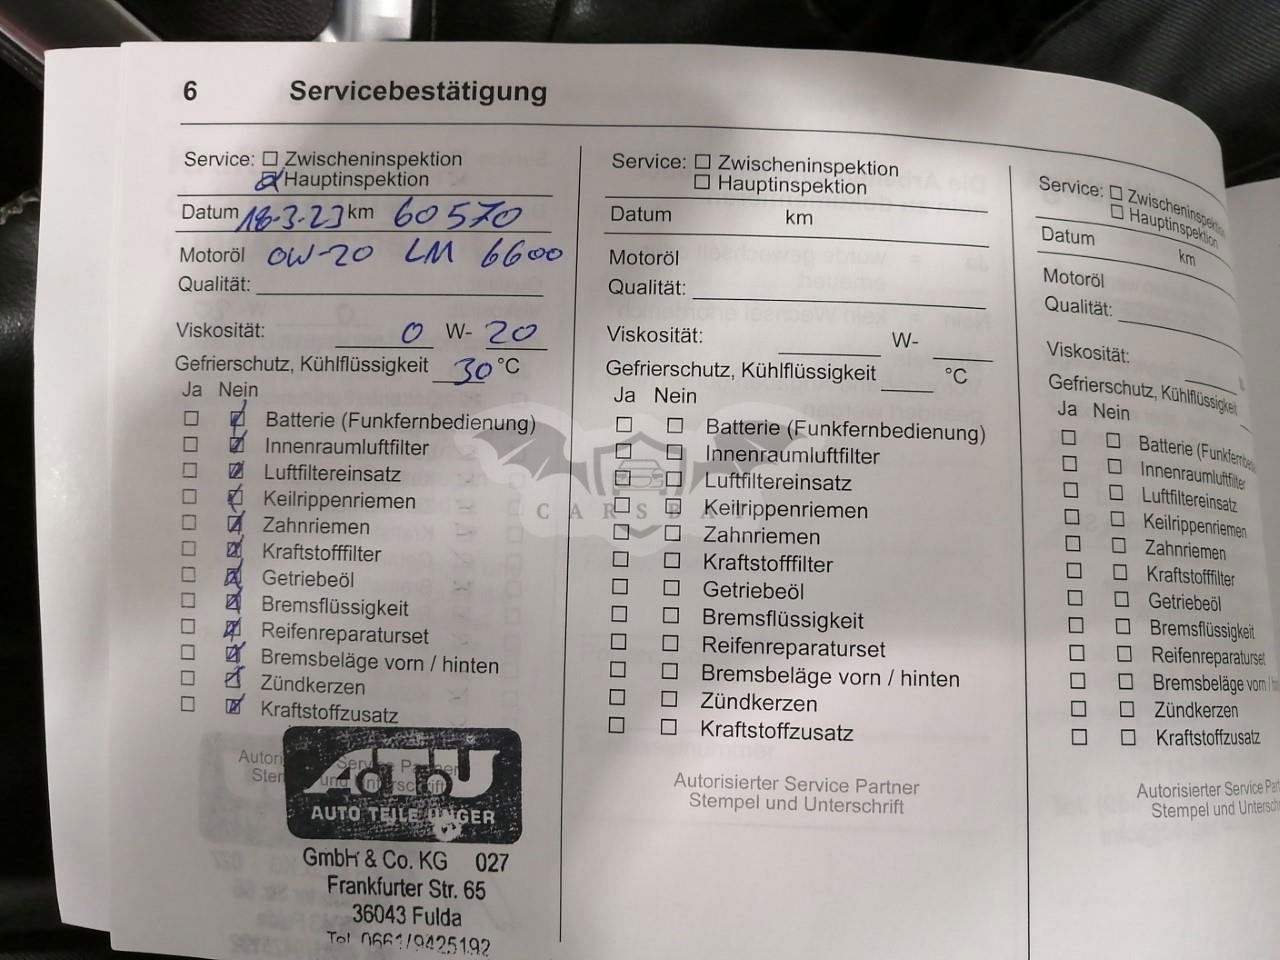 6 Servicebestätigung
Service: Zwischeninspektion
Hauptinspektion
Datum 18-3-23 km 60570
Motoröl 0W-20 LM 6600
Qualität:
Viskosität: 0 W- 20
Gefrierschutz, Kühlflüssigkeit 30 °C
Ja Nein
Batterie (Funkfernbedienung)
Innenraumluftfilter
Luftfiltereinsatz
Keilrippenriemen
Zahnriemen
Kraftstofffilter
Getriebeöl
Bremsflüssigkeit
Reifenreparaturset
Bremsbeläge vorn / hinten
Zündkerzen
Kraftstoffzusatz
A.T.U
AUTO TEILE UNGER
GmbH & Co. KG 027
Frankfurter Str. 65
36043 Fulda
Tel. 0661/9425192
Service: Zwischeninspektion
Hauptinspektion
Datum km
Motoröl
Qualität:
Viskosität: W-
Gefrierschutz, Kühlflüssigkeit °C
Ja Nein
Batterie (Funkfernbedienung)
Innenraumluftfilter
Luftfiltereinsatz
Keilrippenriemen
Zahnriemen
Kraftstofffilter
Getriebeöl
Bremsflüssigkeit
Reifenreparaturset
Bremsbeläge vorn / hinten
Zündkerzen
Kraftstoffzusatz
Autorisierter Service Partner
Stempel und Unterschrift
Service: Zwischeninspekt
Hauptinspektion
Datum km
Motoröl
Qualität:
Viskosität:
Gefrierschutz, Kühlflüssigkeit
Ja Nein
Batterie (Funkfernbe
Innenraumluftfilter
Luftfiltereinsatz
Keilrippenriemen
Zahnriemen
Kraftstofffilter
Getriebeöl
Bremsflüssigkeit
Reifenreparaturset
Bremsbeläge vorn /
Zündkerzen
Kraftstoffzusatz
Autorisierter Service Part
Stempel und Unterschr